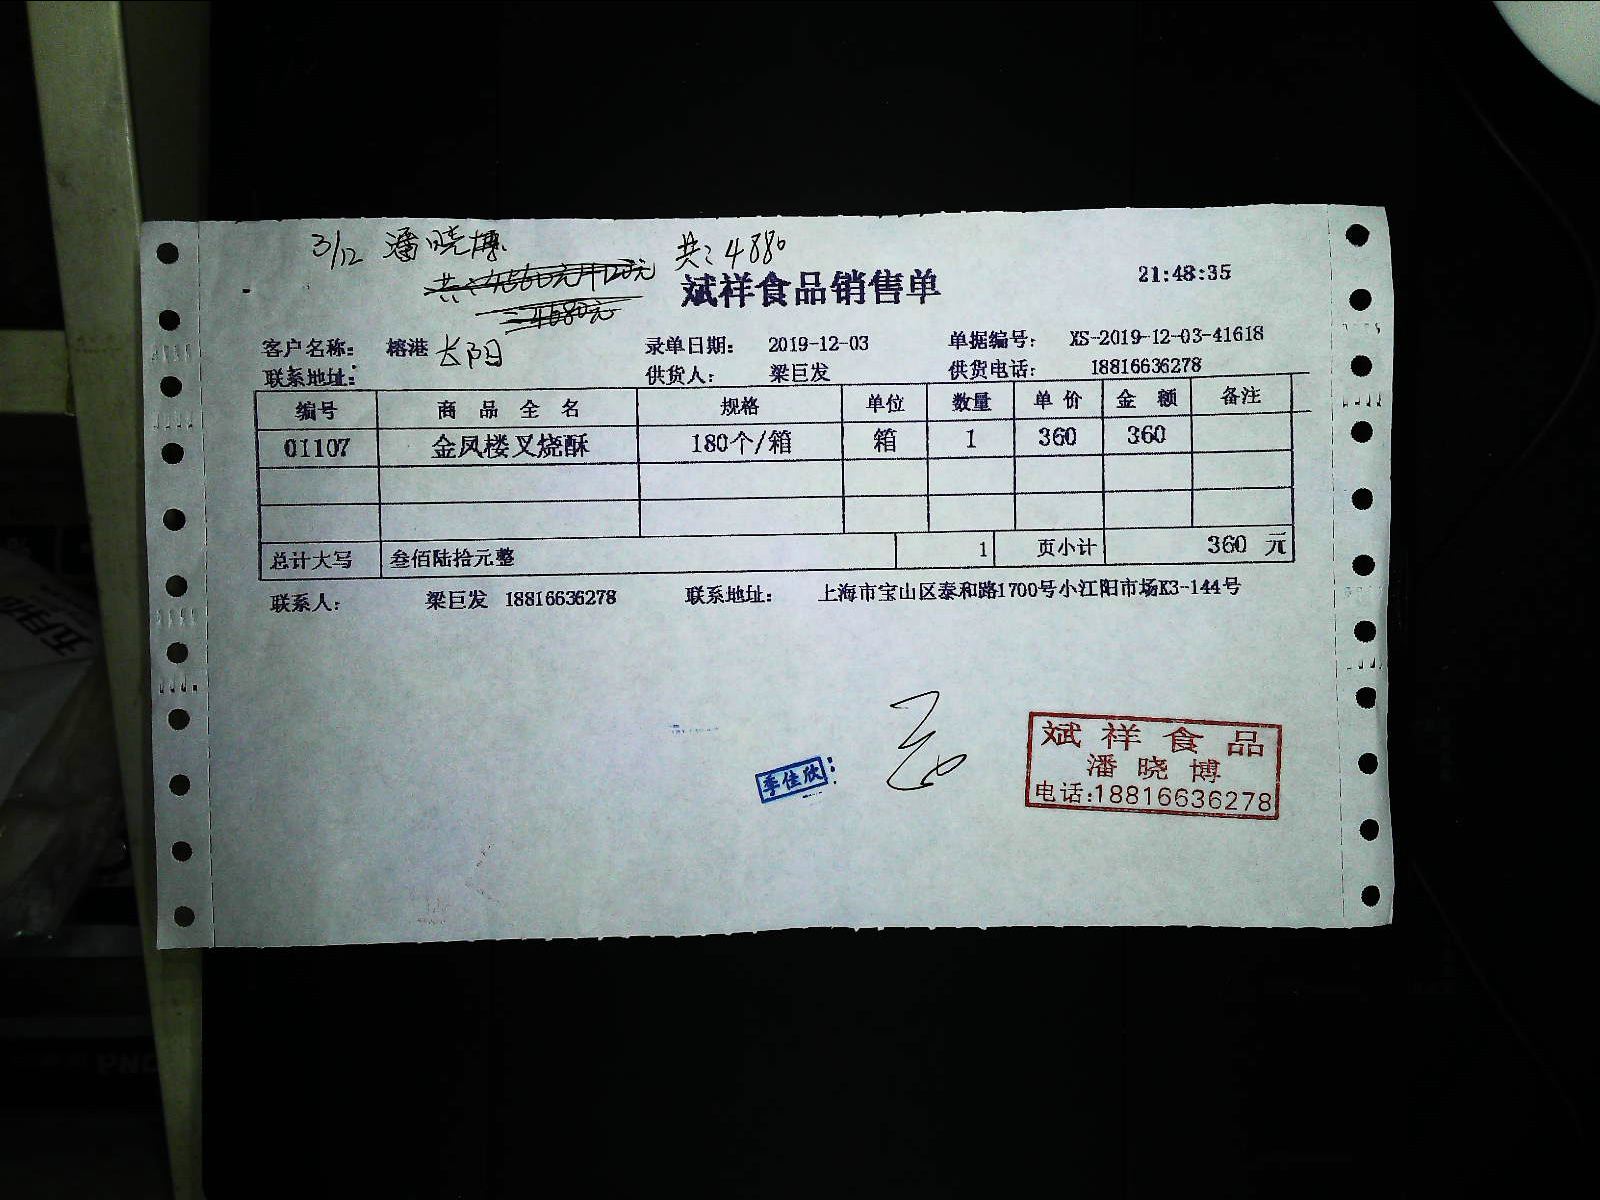 3/12 潘晓博 共:4880
共:4560元+120元
=4680元
斌祥食品销售单 21:48:35
客户名称: 榕港 长阳 录单日期: 2019-12-03 单据编号: XS-2019-12-03-41618
联系地址: 供货人: 梁巨发 供货电话: 18816636278
编号 商品全名 规格 单位 数量 单价 金额 备注
01107 金凤楼叉烧酥 180个/箱 箱 1 360 360
总计大写 叁佰陆拾元整 1 页小计 360 元
联系人: 梁巨发 18816636278 联系地址: 上海市宝山区泰和路1700号小江阳市场K3-144号
季佳欣
斌祥食品
潘晓博
电话:18816636278